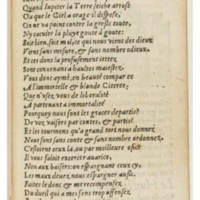 Quand Iupiter la Terre seiche arrose
Ou que le Ciel a orage dispose,
On ne va point contre la gresle
Ny raculer la pluye goute à goute:
Soit bien, soit mal, ce qui nous vient des dieux
Vient sans mesure, & sans nombre odieux.
Et ces dons la profusement
Sont conuenans a hautes maiestez.
Vous donc aymé, en beauté compar ee
A l'immortelle & blonde Citeree,
Que n'usez vous de liberalité
A partenante a immortalité
Pourquoy nous sont les graces departies
De voz baisers par contes, & parties?
Et les tourmens qu'a grand tort nous donnez
Nous sont sans conte & sans nombre ordonnez.
C'estoient ceux la, ou par meilleure
Il vous faloit exercer auarice,
Non aux baisers: en espargnant ceux cy,
Les maux deuiez nous espargner aussi.
Faites le donc & me recompensez
Du dueil qui a mes sens trop offensez